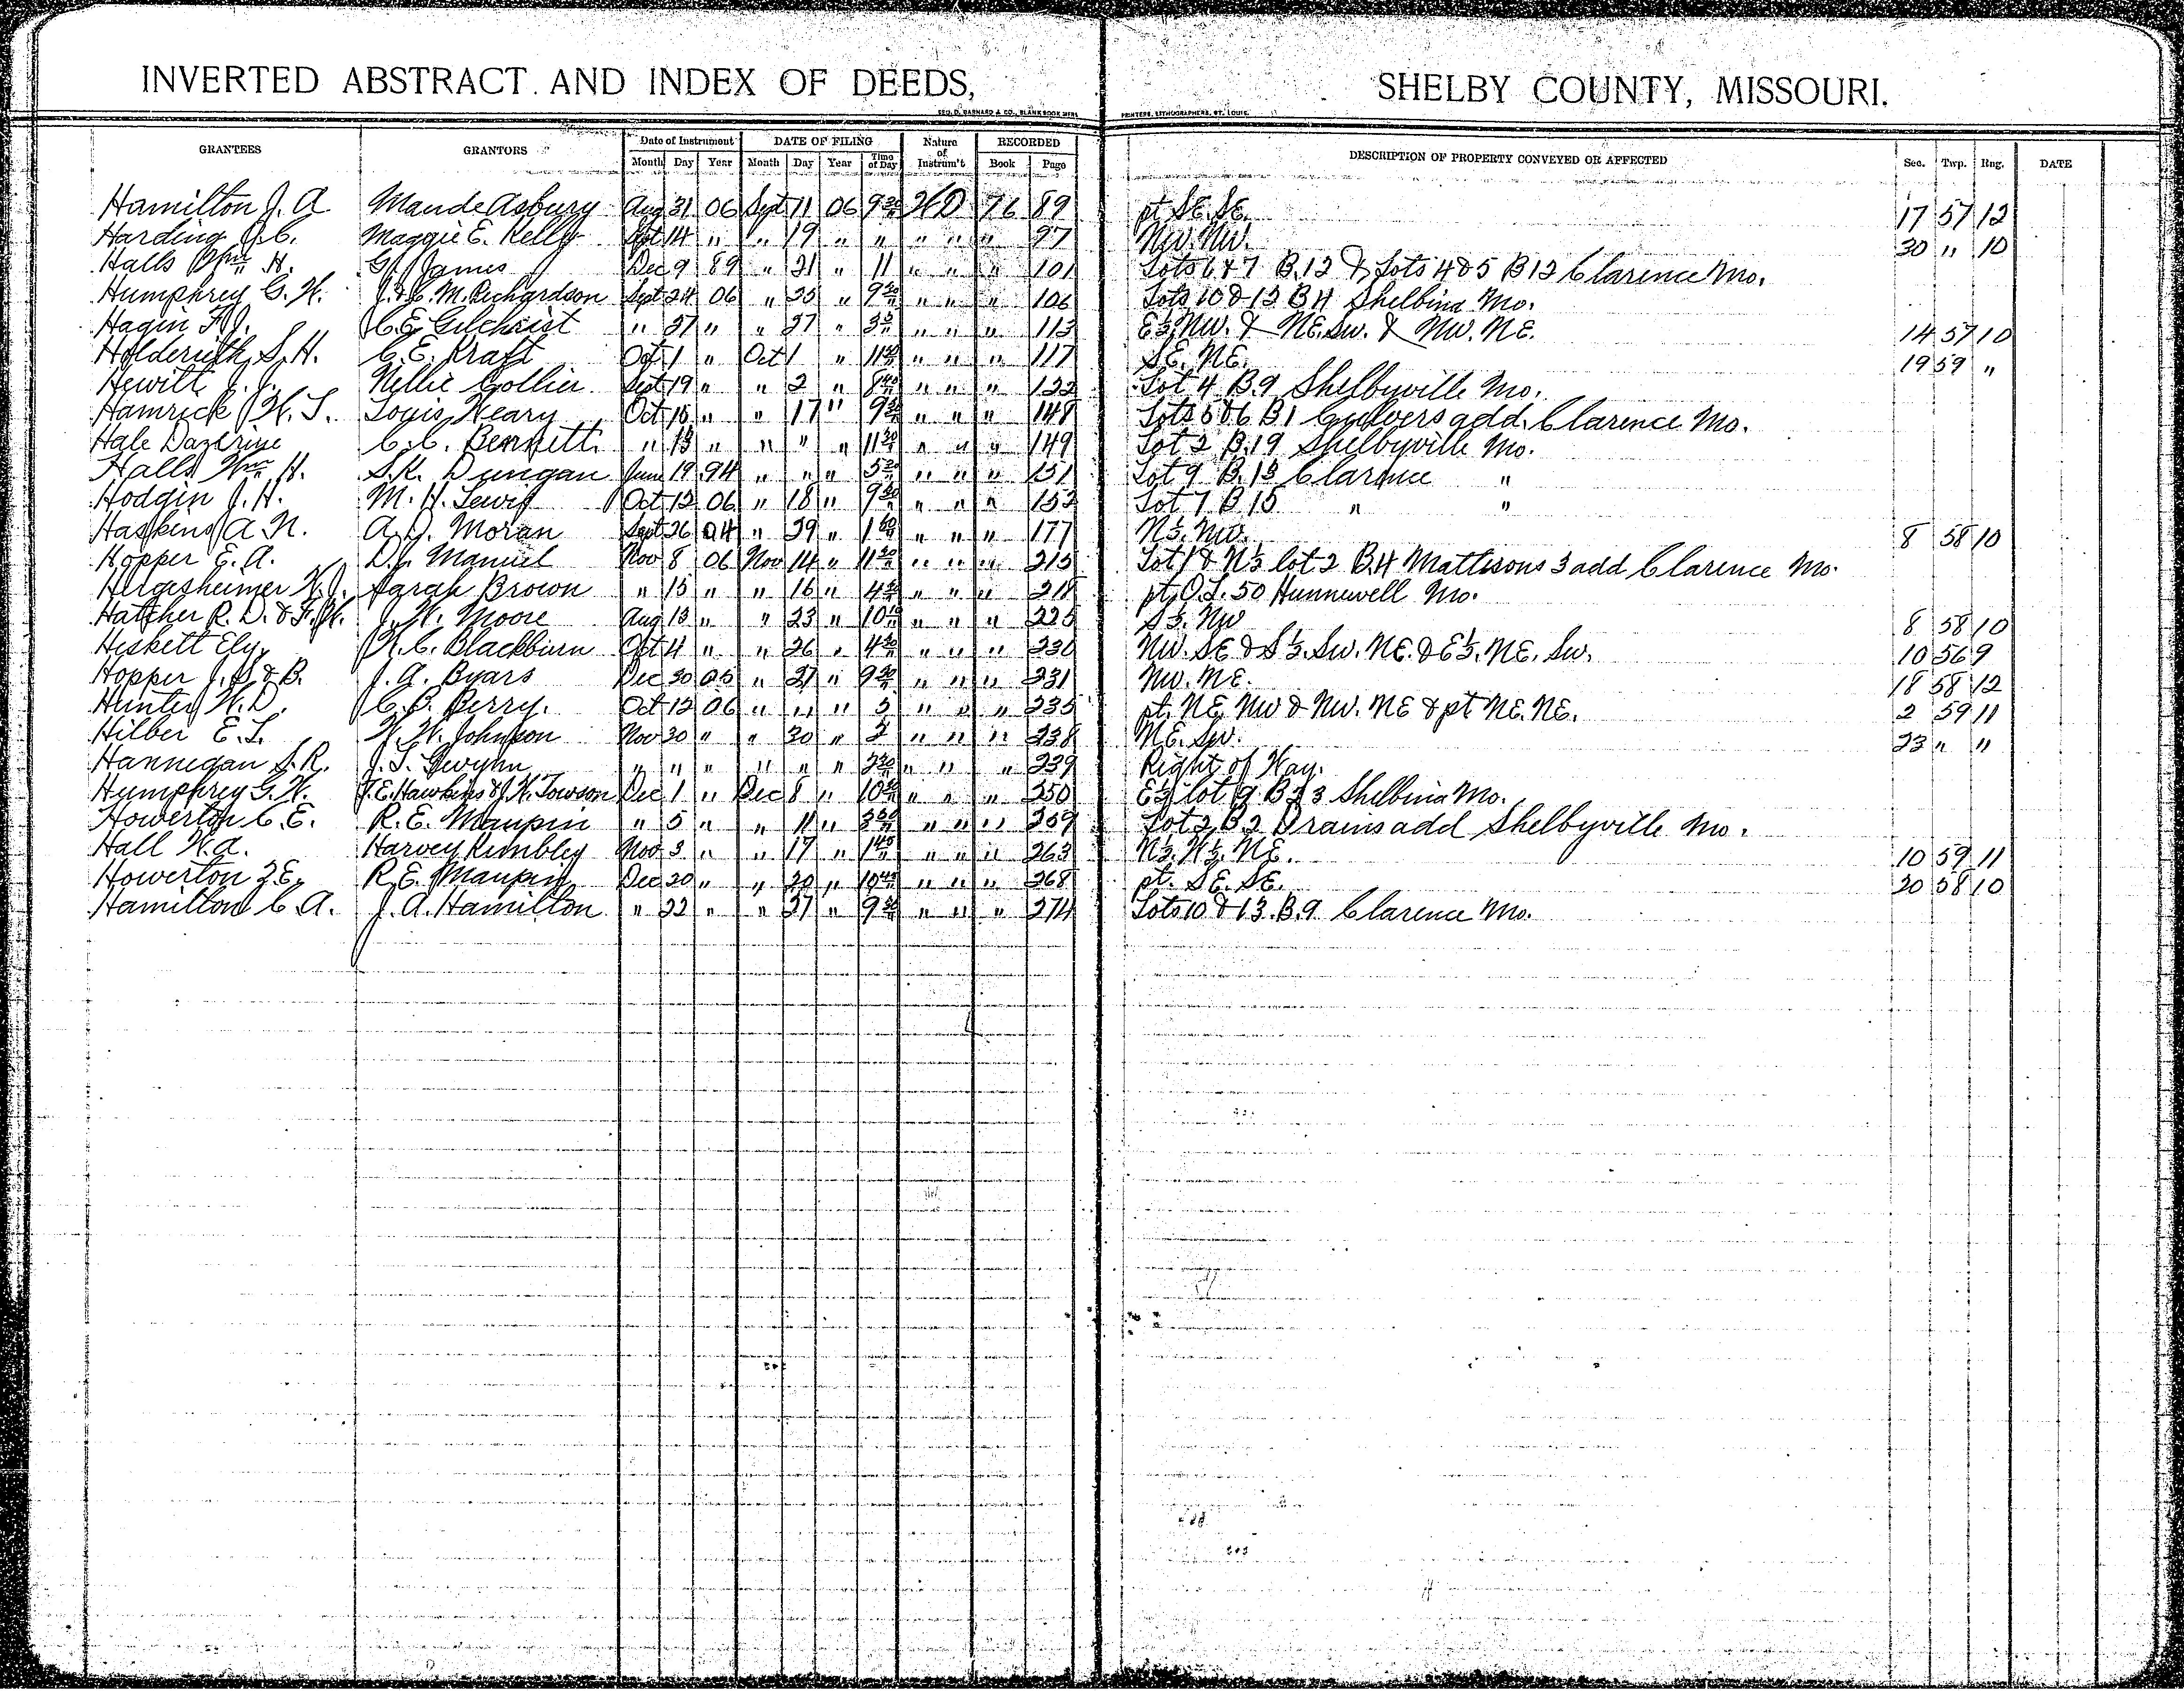 INVERTED ABSTRACT AND INDEX OF DEEDS, SHELBY COUNTY, MISSOURI.
GEO. D. BARNARD & CO., BLANK BOOK MFRS. PRINTERS, LITHOGRAPHERS, ST. LOUIS.
GRANTEES GRANTORS Date of Instrument DATE OF FILING Nature of Instrum't RECORDED DESCRIPTION OF PROPERTY CONVEYED OR AFFECTED Sec. Twp. Rng. DATE
Month Day Year Month Day Year Time of Day Book Page
Hamilton J. A. Maude Asbury Aug 31 06 Sept 11 06 9 30 WD 76 89 pt. SE. SE. 17 57 12
Harding J.C. Maggie E. Kelly Sept 14 " " 19 " " " " " 97 NW. NW. 30 " 10
Halls Wm H. James Dec 9 89 " 21 " 11 " " " 101 Lots 6 & 7 B.12 & Lots 4 & 5 B 13 Clarence Mo.
Humphrey G. W. M. Richardson Sept 24 06 " 25 " 9 30 " " " 106 Lots 10 & 13 B 4 Shelbina Mo.
Hagin F. J. C. E. Gilchrist " 27 " " 27 " " " " 113 E½ NW. & NE. SW. & NW. NE. 14 57 10
Holderieth S. H. C. E. Kraft Oct 1 " Oct 1 " 11 " " " 117 SE. NE. 19 59 "
Hewitt J. J. Nellie Collier Sept 19 " " 2 " " " " 122 Lot 4 B.9 Shelbyville Mo.
Hamrick W. S. Louis Neary Oct 15 " " 17 " 9 30 " " " 148 Lots 5 & 6 B 1 Culvers add. Clarence Mo.
Hale Dazerine C. C. Bennett " 13 " " " " 11 30 " " " 149 Lot 2 B.19 Shelbyville Mo.
Halls Wm H. S. R. Dungan June 19 94 " " " " " " 151 Lot 9 B.13 Clarence "
Hodgin J. H. M. H. Lewis Oct 12 06 " 18 " 9 30 " " " 153 Lot 7 B 15 " "
Haskins A N. A. D. Moran Sept 26 04 " 29 " 1 " " " 177 N½. NW. 8 58 10
Hopper E. A. D. J. Manuel Nov 8 06 Nov 14 " 11 30 " " " 215 Lot 1 & N½ lot 2 B.4 Mattisons 3 add Clarence Mo.
Hergesheimer Sarah Brown " 15 " " 16 " 4 " " " 218 pt. O.L. 50 Hunnewell Mo.
Hatcher R. D. & F. W. J. W. Moore Aug 13 " " 23 " 10 " " " 225 S½. NW 8 58 10
Heskett Ely H. C. Blackburn Oct 4 " " 26 " 4 " " " 230 NW. SE & S½. SW. NE. & E½. NE. SW. 10 56 9
Hopper J. S & B. J. A. Byars Dec 30 05 " 27 " 9 30 " " " 231 NW. NE. 18 58 12
Hunter W. D. C. B. Perry. Oct 12 06 " " " 3 " " " 235 pt. NE. NW & NW. NE & pt NE. NE. 2 59 11
Hilber E. L. W. W. Johnson Nov 30 " " 30 " 2 " " " 238 NE. SW. 23 " "
Hannegan S. R. J. S. Gwyhn " " " " " " 2 30 " " " 239 Right of Way.
Humphrey G. W. T. E. Hawkins & J. W. Towson Dec 1 " Dec 8 " 10 " " " 250 E½ lot 9 B 23 Shelbina Mo.
Howerton C. E. R. E. Maupin " 5 " " 11 " " " " 259 Lot 2 B 2 Drains add Shelbyville Mo.
Hall W. A. Harvey Kimbley Nov 3 " " 17 " 1 45 " " " 263 N½. W½. NE. 10 59 11
Howerton Z. E. R. E. Maupin Dec 20 " " 20 " 10 " " " 268 pt. SE. SE. 20 58 10
Hamilton C. A. J. A. Hamilton " 22 " " 27 " 9 30 " " " 274 Lots 10 & 13. B.9 Clarence Mo.